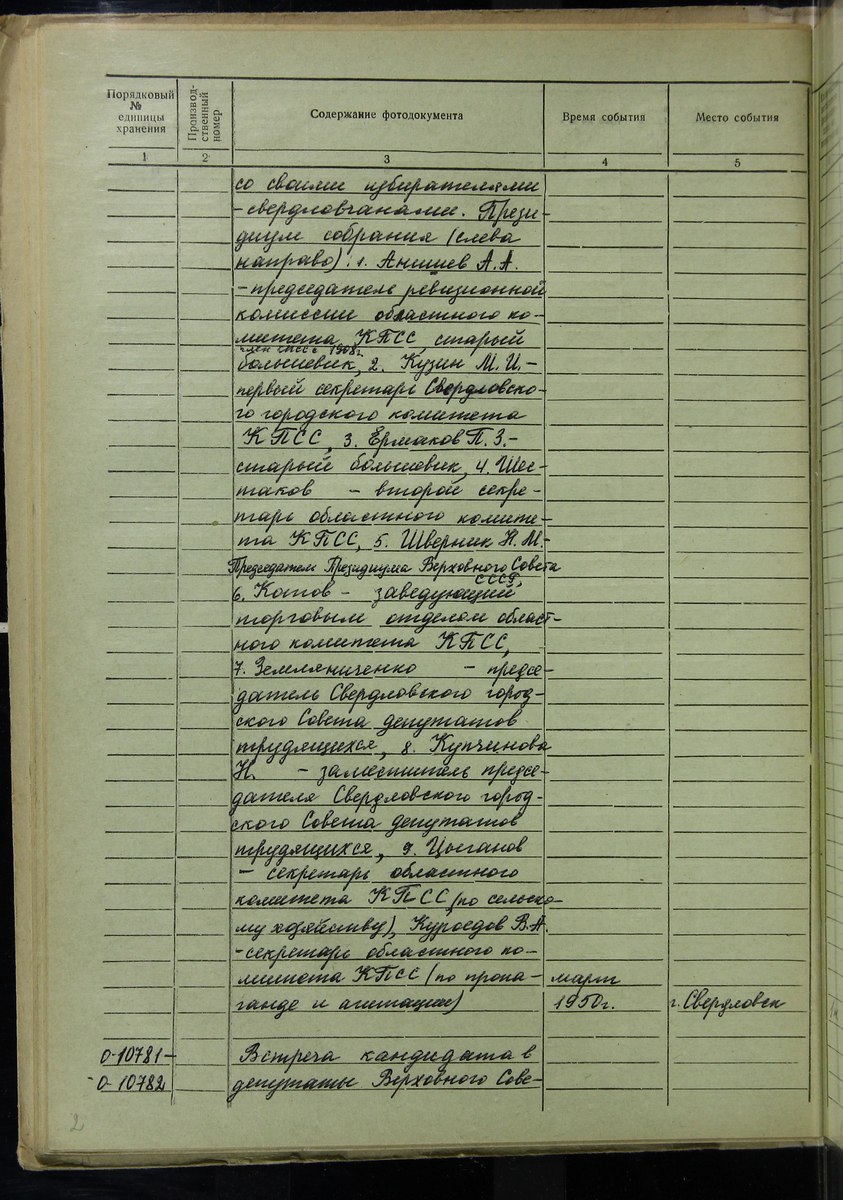 Порядковый № единицы хранения
Производ-ственный номер
Содержание фотодокумента
Время события
Место события
1 2 3 4 5
со своими избирателями
-свердловчанами. Прези-
диум собрания (слева
направо): 1. Анишев А.А.
-председатель ревизионной
комиссии областного ко-
митета КПСС, старый
член КПСС с 1908г.
большевик, 2. Кузин М.И.-
первый секретарь Свердловско-
го городского комитета
КПСС, 3. Ермаков П.З.-
старый большевик, 4. Шес-
таков - второй секре-
тарь областного комите-
та КПСС, 5. Шверник Н.М-
Председатель Президиума Верховного Совета
СССР,
6. Котов - заведующий
торговым отделом област-
ного комитета КПСС,
7. Земляниченко - предсе-
датель Свердловского город-
ского Совета депутатов
трудящихся, 8. Купчинова
Н. - заместитель предсе-
дателя Свердловского город-
ского Совета депутатов
трудящихся, 9. Цыганов
- секретарь областного
комитета КПСС (по сельско-
му хозяйству), Куроедов В.А.
-секретарь областного ко-
митета КПСС (по пропа- март
ганде и агитации) 1950г. г. Свердловск
0-10781- Встреча кандидата в
0-10782 депутаты Верховного Сове-
2